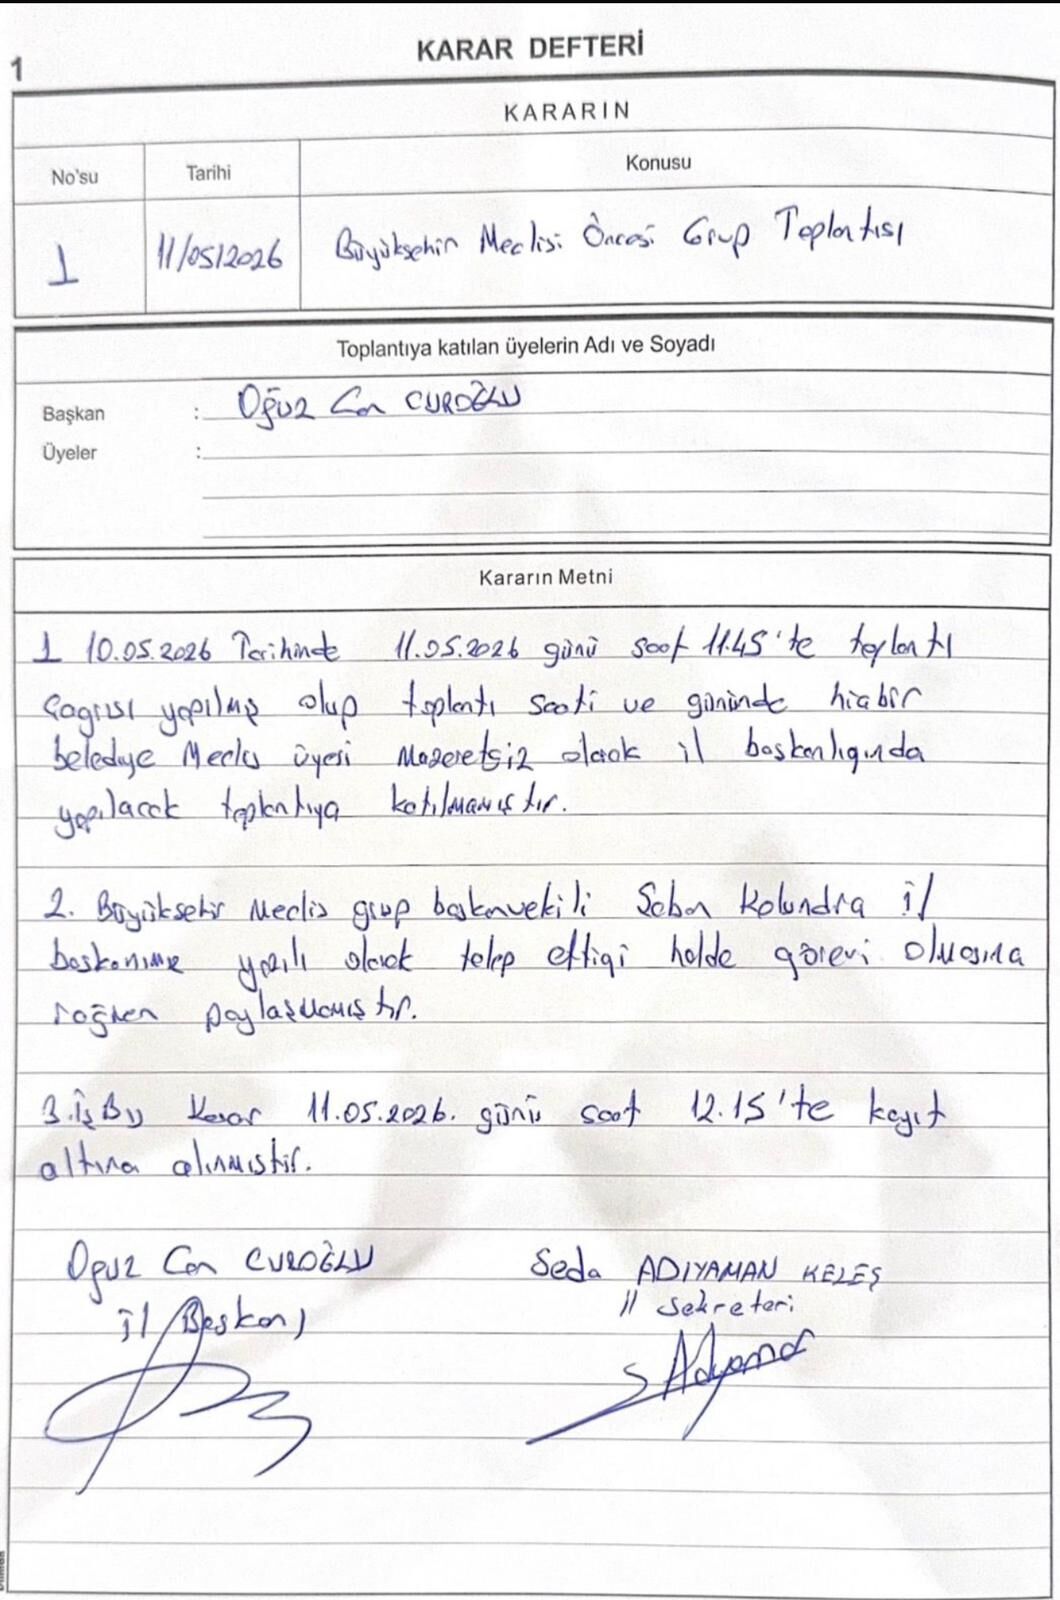 1
KARAR DEFTERİ
KARARIN
No'su
Tarihi
Konusu
1
11/05/2026
Büyükşehir Meclisi Öncesi Grup Toplantısı
Toplantıya katılan üyelerin Adı ve Soyadı
Başkan : Oğuz Can CUROĞLU
Üyeler :
Kararın Metni
1 10.05.2026 Tarihinde 11.05.2026 günü saat 11.45'te toplantı
çagrısı yapılmış olup toplantı saati ve gününde hiçbir
belediye Meclis üyesi Mazeretsiz olarak il başkanlıgında
yapılacak toplantıya katılmamıştır.
2. Büyükşehir Meclis grup başkanvekili Şaban Kolundra il
başkanıma yazılı olarak talep ettigi halde görevi olmasına
rağmen paylaşmamıştır.
3. İş Bu Karar 11.05.2026. günü saat 12.15'te kayıt
altına alınmıştır.
Oguz Can CUROĞLU
Seda ADIYAMAN KELEŞ
İl Başkanı
İl Sekreteri
S Adıyaman